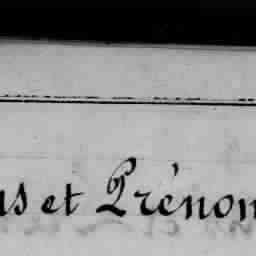 ns et Prénom